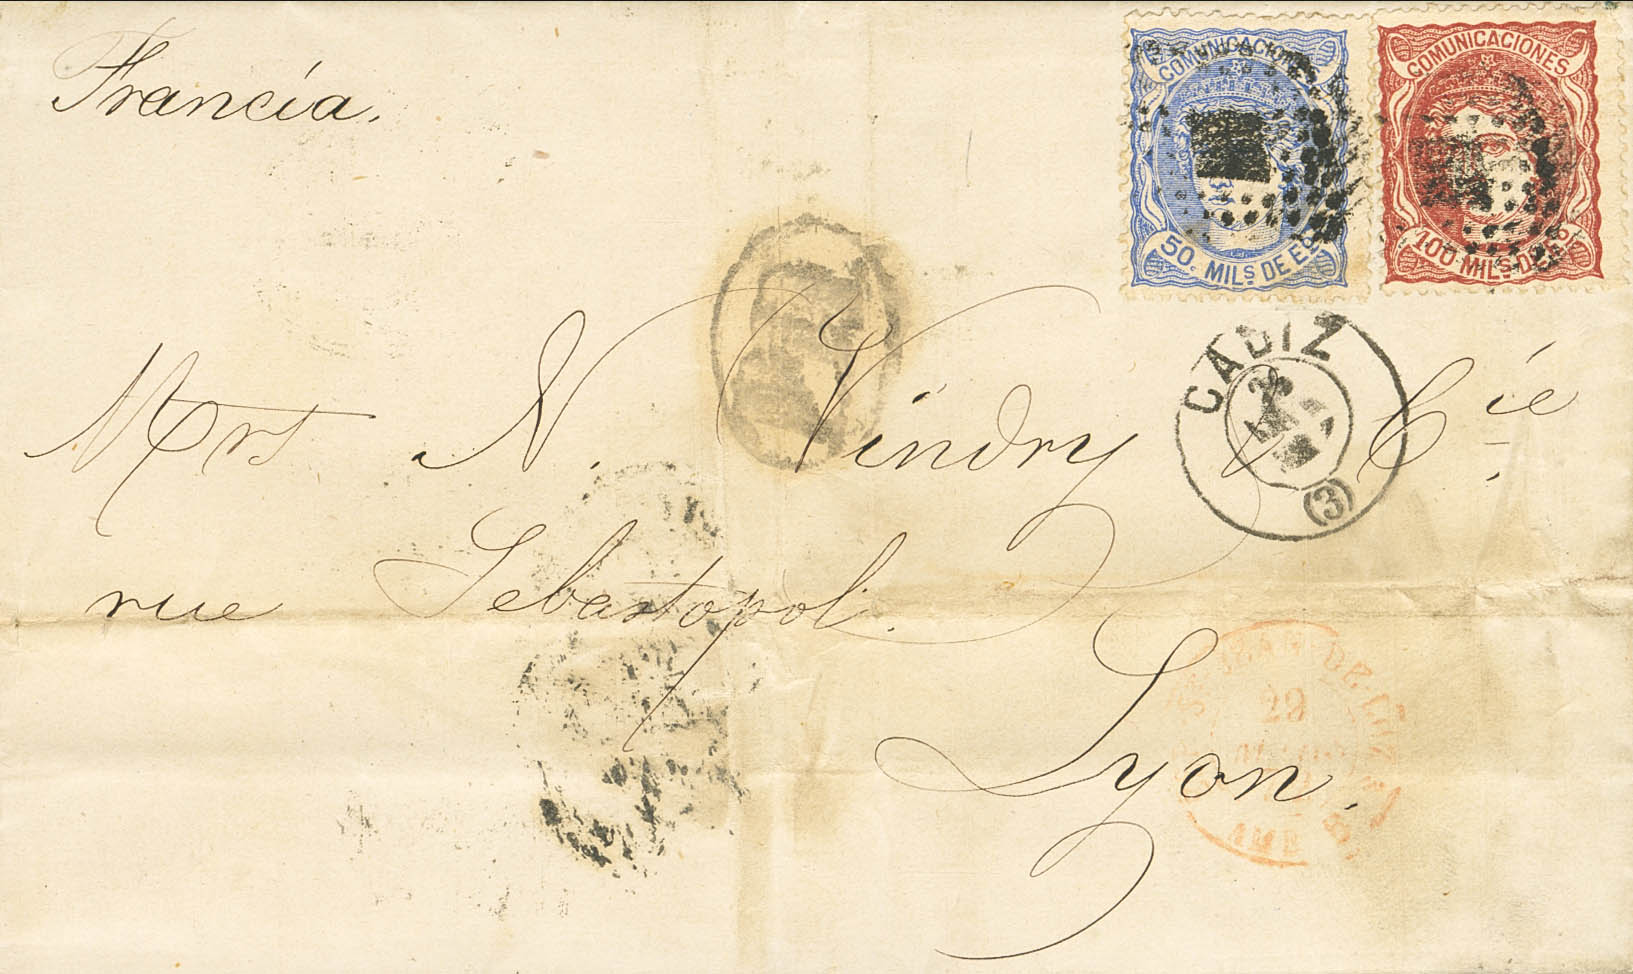 Francia.
COMUNICACIONES
50 MILS. DE E
COMUNICACIONES
100 MILS. DE
CADIZ
(3)
Mrs N. Vindry & Cie.
rue Sebastopol.
Lyon.
29
AMB